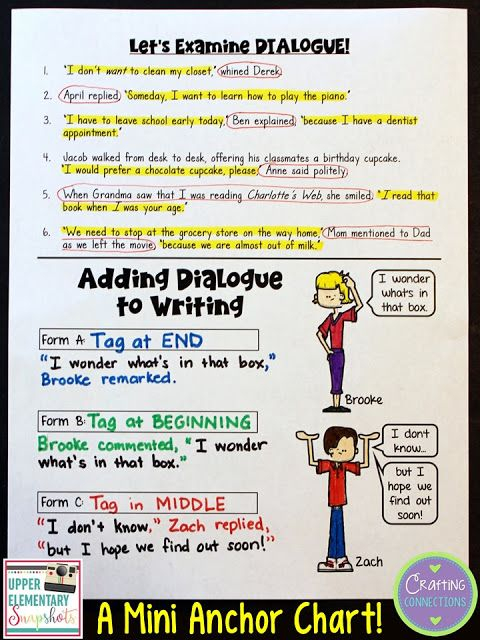 Let's Examine DIALOGUE!
1. "I don't want to clean my closet," whined Derek.
2. April replied, "Someday, I want to learn how to play the piano."
3. "I have to leave school early today," Ben explained, "because I have a dentist
appointment."
4. Jacob walked from desk to desk, offering his classmates a birthday cupcake.
"I would prefer a chocolate cupcake, please," Anne said politely.
5. When Grandma saw that I was reading Charlotte's Web, she smiled, "I read that
book when I was your age."
6. "We need to stop at the grocery store on the way home," Mom mentioned to Dad
as we left the movie, "because we are almost out of milk."
Adding Dialogue
to Writing
Form A: Tag at END
"I wonder what's in that box,"
Brooke remarked.
Form B: Tag at BEGINNING
Brooke commented, "I wonder
what's in that box."
Form C: Tag in MIDDLE
"I don't know," Zach replied,
"but I hope we find out soon!"
I wonder
what's in
that box.
Brooke
I don't
know...
but I
hope we
find out
soon!
Zach
UPPER
ELEMENTARY
Snapshots
A Mini Anchor Chart!
Crafting
CONNECTIONS